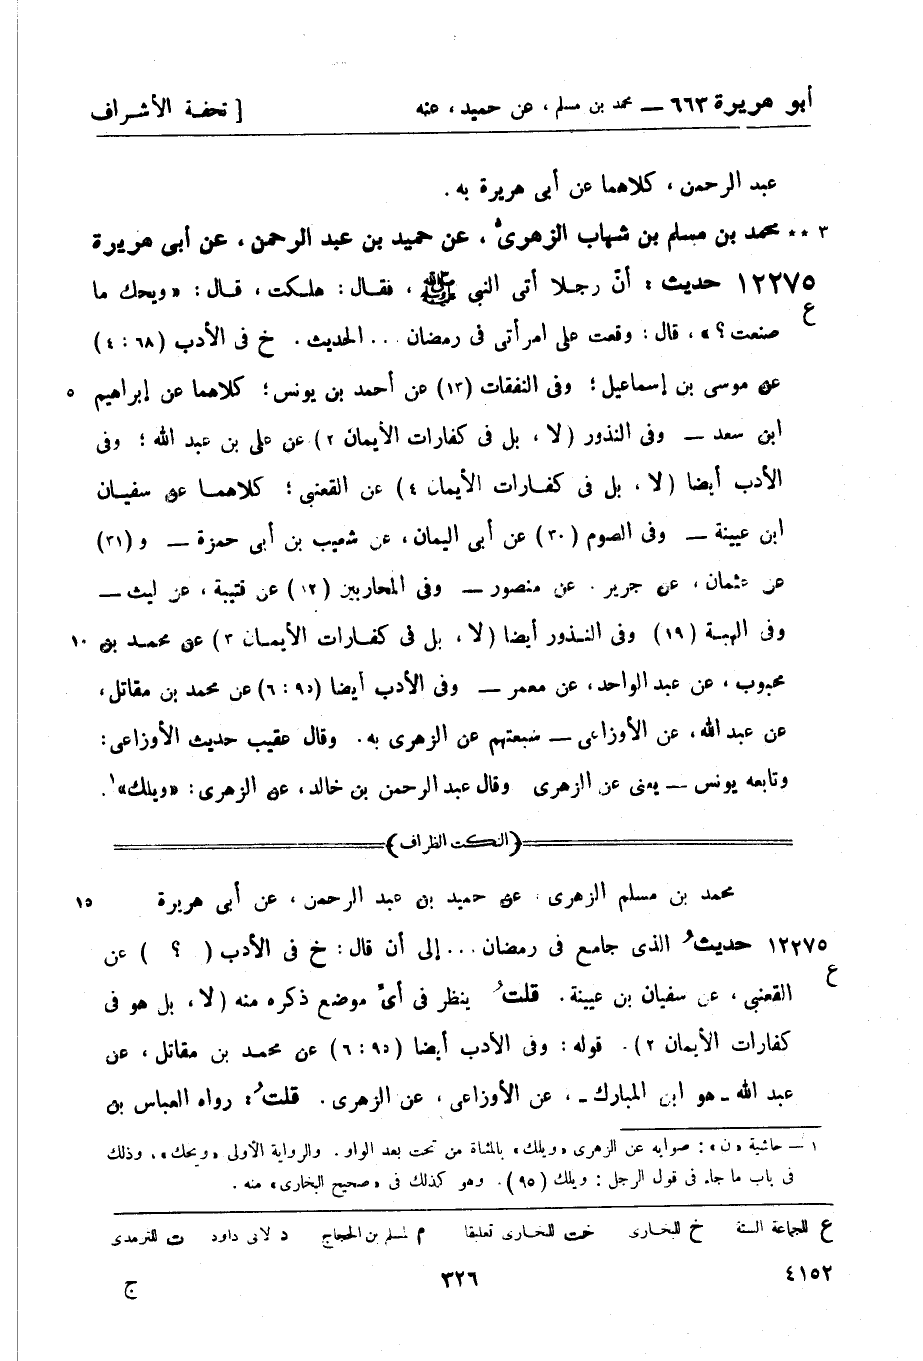 أبو هريرة ٦٦٣ — محمد بن مسلم ، عن حميد ، عنه [ تحفة الأشراف
عبد الرحمن ، كلاهما عن أبى هريرة به .
٣ ** محمد بن مسلم بن شهاب الزهرىُّ ، عن حميد بن عبد الرحمن ، عن أبى هريرة
١٢٢٧٥ حديث : أنّ رجلا أتى النبي ﷺ ، فقال : هلكت ، قال : «ويحك ما
ع
صنعت ؟» ، قال : وقعت على امرأتى فى رمضان ... الحديث . خ فى الأدب (٦٨ : ٤)
عن موسى بن إسماعيل ؛ وفى النفقات (١٣) عن أحمد بن يونس ؛ كلاهما عن إبراهيم ٥
ابن سعد — وفى النذور (لا ، بل فى كفارات الأيمان ٢) عن على بن عبد الله ؛ وفى
الأدب أيضا (لا ، بل فى كفارات الأيمان ٤) عن القعنبى ؛ كلاهما عن سفيان
ابن عيينة — وفى الصوم (٣٠) عن أبى اليمان ، عن شعيب بن أبى حمزة — و (٣١)
عن عثمان ، عن جرير . عن منصور — وفى المحاربين (١٢) عن قتيبة ، عن ليث —
وفى الهبة (١٩) وفى النذور أيضا (لا ، بل فى كفارات الأيمان ٣) عن محمد بن ١٠
محبوب ، عن عبد الواحد ، عن معمر — وفى الأدب أيضا (٩٥ : ٦) عن محمد بن مقاتل ،
عن عبد الله ، عن الأوزاعى — ضبعتهم عن الزهرى به . وقال عقيب حديث الأوزاعى :
وتابعه يونس — يعنى عن الزهرى وقال عبد الرحمن بن خالد ، عن الزهرى : «ويلك»١ .
(النكت الظراف)
محمد بن مسلم الزهرى . عن حميد بن عبد الرحمن ، عن أبى هريرة ١٥
١٢٢٧٥ حديثُ الذى جامع فى رمضان ... إلى أن قال : خ فى الأدب ( ؟ ) عن
ع
القعنبى ، عن سفيان بن عيينة . قلتُ ينظر فى أىّ موضع ذكره منه (لا ، بل هو فى
كفارات الأيمان ٢) . قوله : وفى الأدب أيضا (٩٥ : ٦) عن محمد بن مقاتل ، عن
عبد الله ـ هو ابن المبارك ـ ، عن الأوزاعى ، عن الزهرى . قلتُ : رواه العباس بن
١ — حاشية «ن» : صوابه عن الزهرى «ويلك» بالمثناة من تحت بعد الواو . والرواية الأولى «ويحك» ، وذلك
فى باب ما جاء فى قول الرجل : ويلك (٩٥) . وهو كذلك فى «صحيح البخارى» منه .
ع للجماعة الستة خ للبخارى خت للبخارى تعليقا م لمسلم بن الحجاج د لأبى داود ت للترمذى
٤١٥٢ ٣٢٦ ج